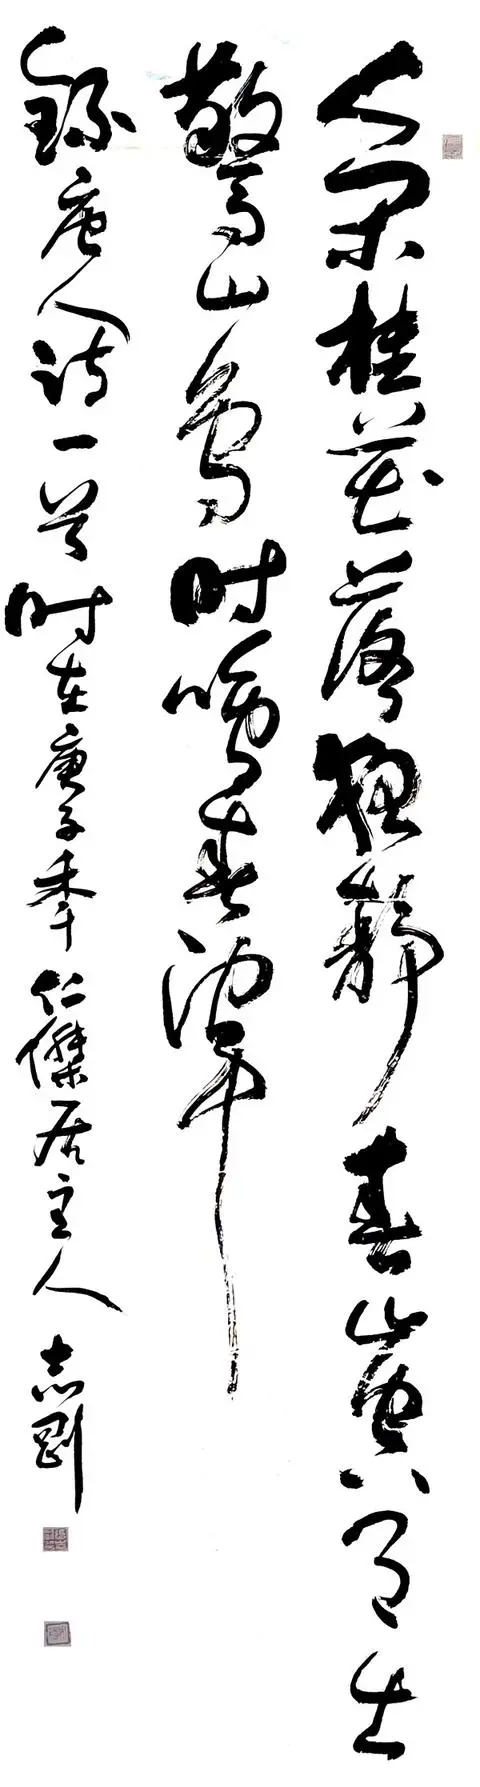 人闲桂花落夜静春山空月出
驚山鸟时鸣春涧中
録唐人诗一首时在庚子年仁傑居主人志剛